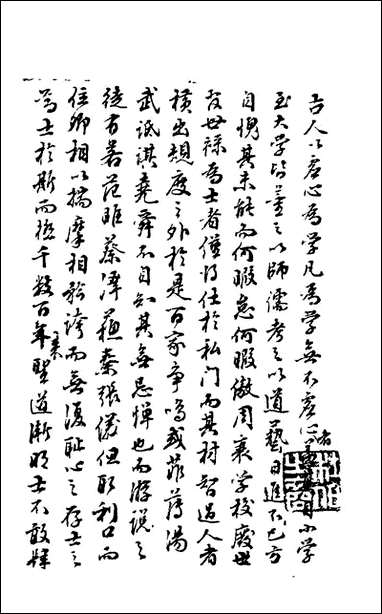 古人以虛心為學凡為學無不虛心者自小學
至大學皆董之以師儒考之以道藝日進不已方
自愧其未能而何暇怠何暇傲周衰學校廢世
變世祿為士者僅得仕於私門而其材智過人者
橫出規度之外於是百家爭鳴或菲薄湯
武詆誹堯舜不自知其無忌憚也而游說之
徒有若范雎蔡澤蘇秦張儀但取利口而
任卿相以揣摩相誇而無復恥心之存士之
為士於斯而極千數百年來聖道漸明士不敢肆